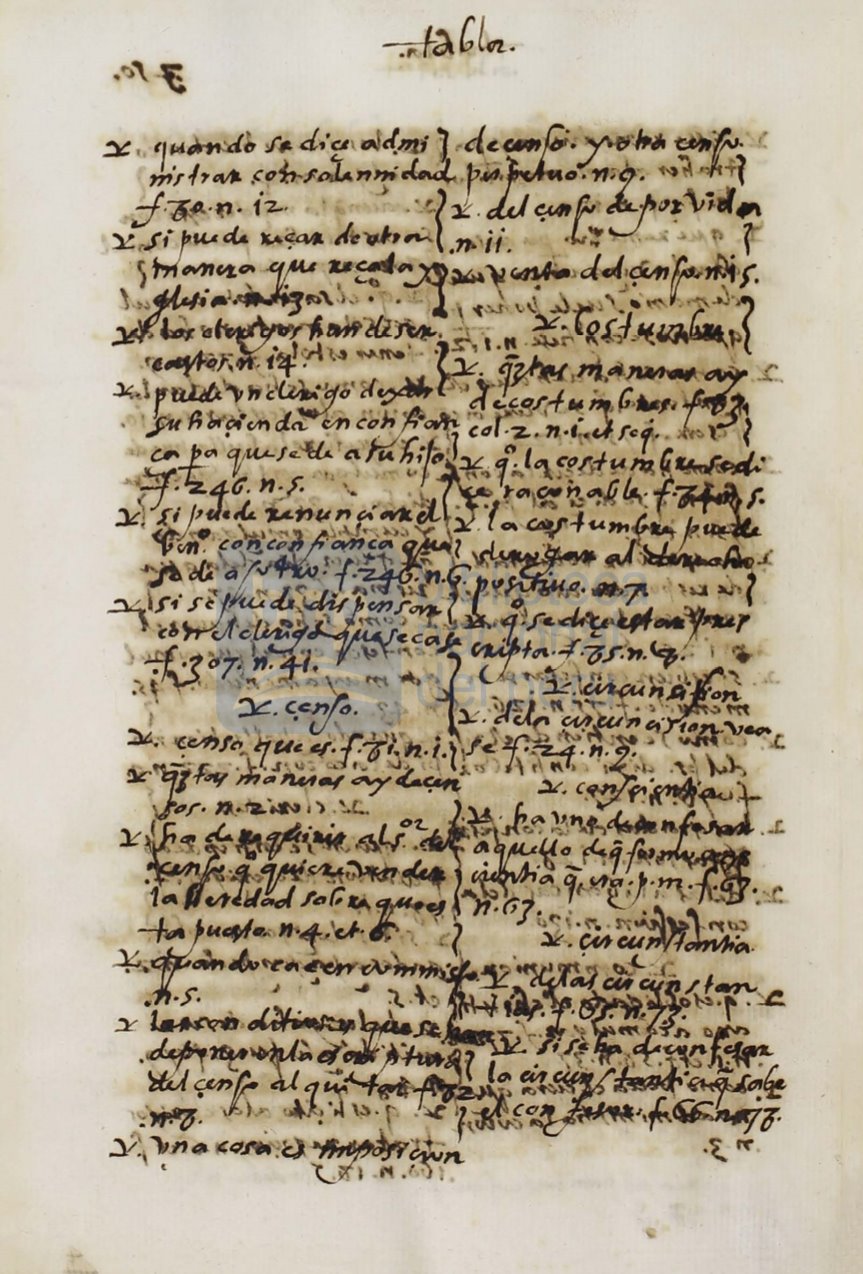 tabla.
℣. quando se diçe admi
nistrar con solennidad
f. 30. n. 12.
℣. si puede reçar de otra
manera que reça la y
glesia. n. 13.
℣. los clerigos han de ser
castos. n. 14.
℣. puede vn clerigo dexar
su haçienda en confian
ça pa que se de a su hijo
f. 246. n. 5.
℣. si puede renunciar el
con confiança que
se de a f. 246. n. 6.
℣. si se puede dispensar
con el clerigo que se casa
f. 307. n. 41.
℣. çenso.
℣. censo que es. f. 31. n. 1.
℣. q̃tas maneras ay de cen
sos. n. 2.
℣. ha de requirir al s.or del
censo qº quiere vender
la heredad sobre que es
ta puesto n. 4. et. 6.
℣. quando cae en commisso
n. 5.
℣. las conditiones que se han
de poner en la escriptura
del çenso al quitar f. 32.
n. 3.
℣. vna cosa es imposicion
de censo. y otra censo
perpetuo. n. 9.
℣. del çenso de por vida
n. 11.
℣. venta del çenso. n. 15.
℣. Costumbre
℣. q̃tas maneras ay
de costumbres. f. 33.
col. 2. n. 1. et seq.
℣. qº. la costumbre se di
çe raçonable. f. 34. n. 5.
℣. la costumbre puede
derogar al derecho
positiuo. n. 7.
℣. qº. se diçe estar pres
cripta. f. 35. n. 8.
℣. circunsission
℣. de la circuncision vea
se f. 24. n. 9.
℣. consçientia
℣. ha vno de confesar
aquello de q̃
cientia q̃ p. m. f. 63.
n. 63.
℣. circunstantia
℣. de las circunstan
tias. f. 65. n. 73.
℣. si se ha de confesar
la circunstantia q̃ sabe
el confesor. f. 66. n. 73.